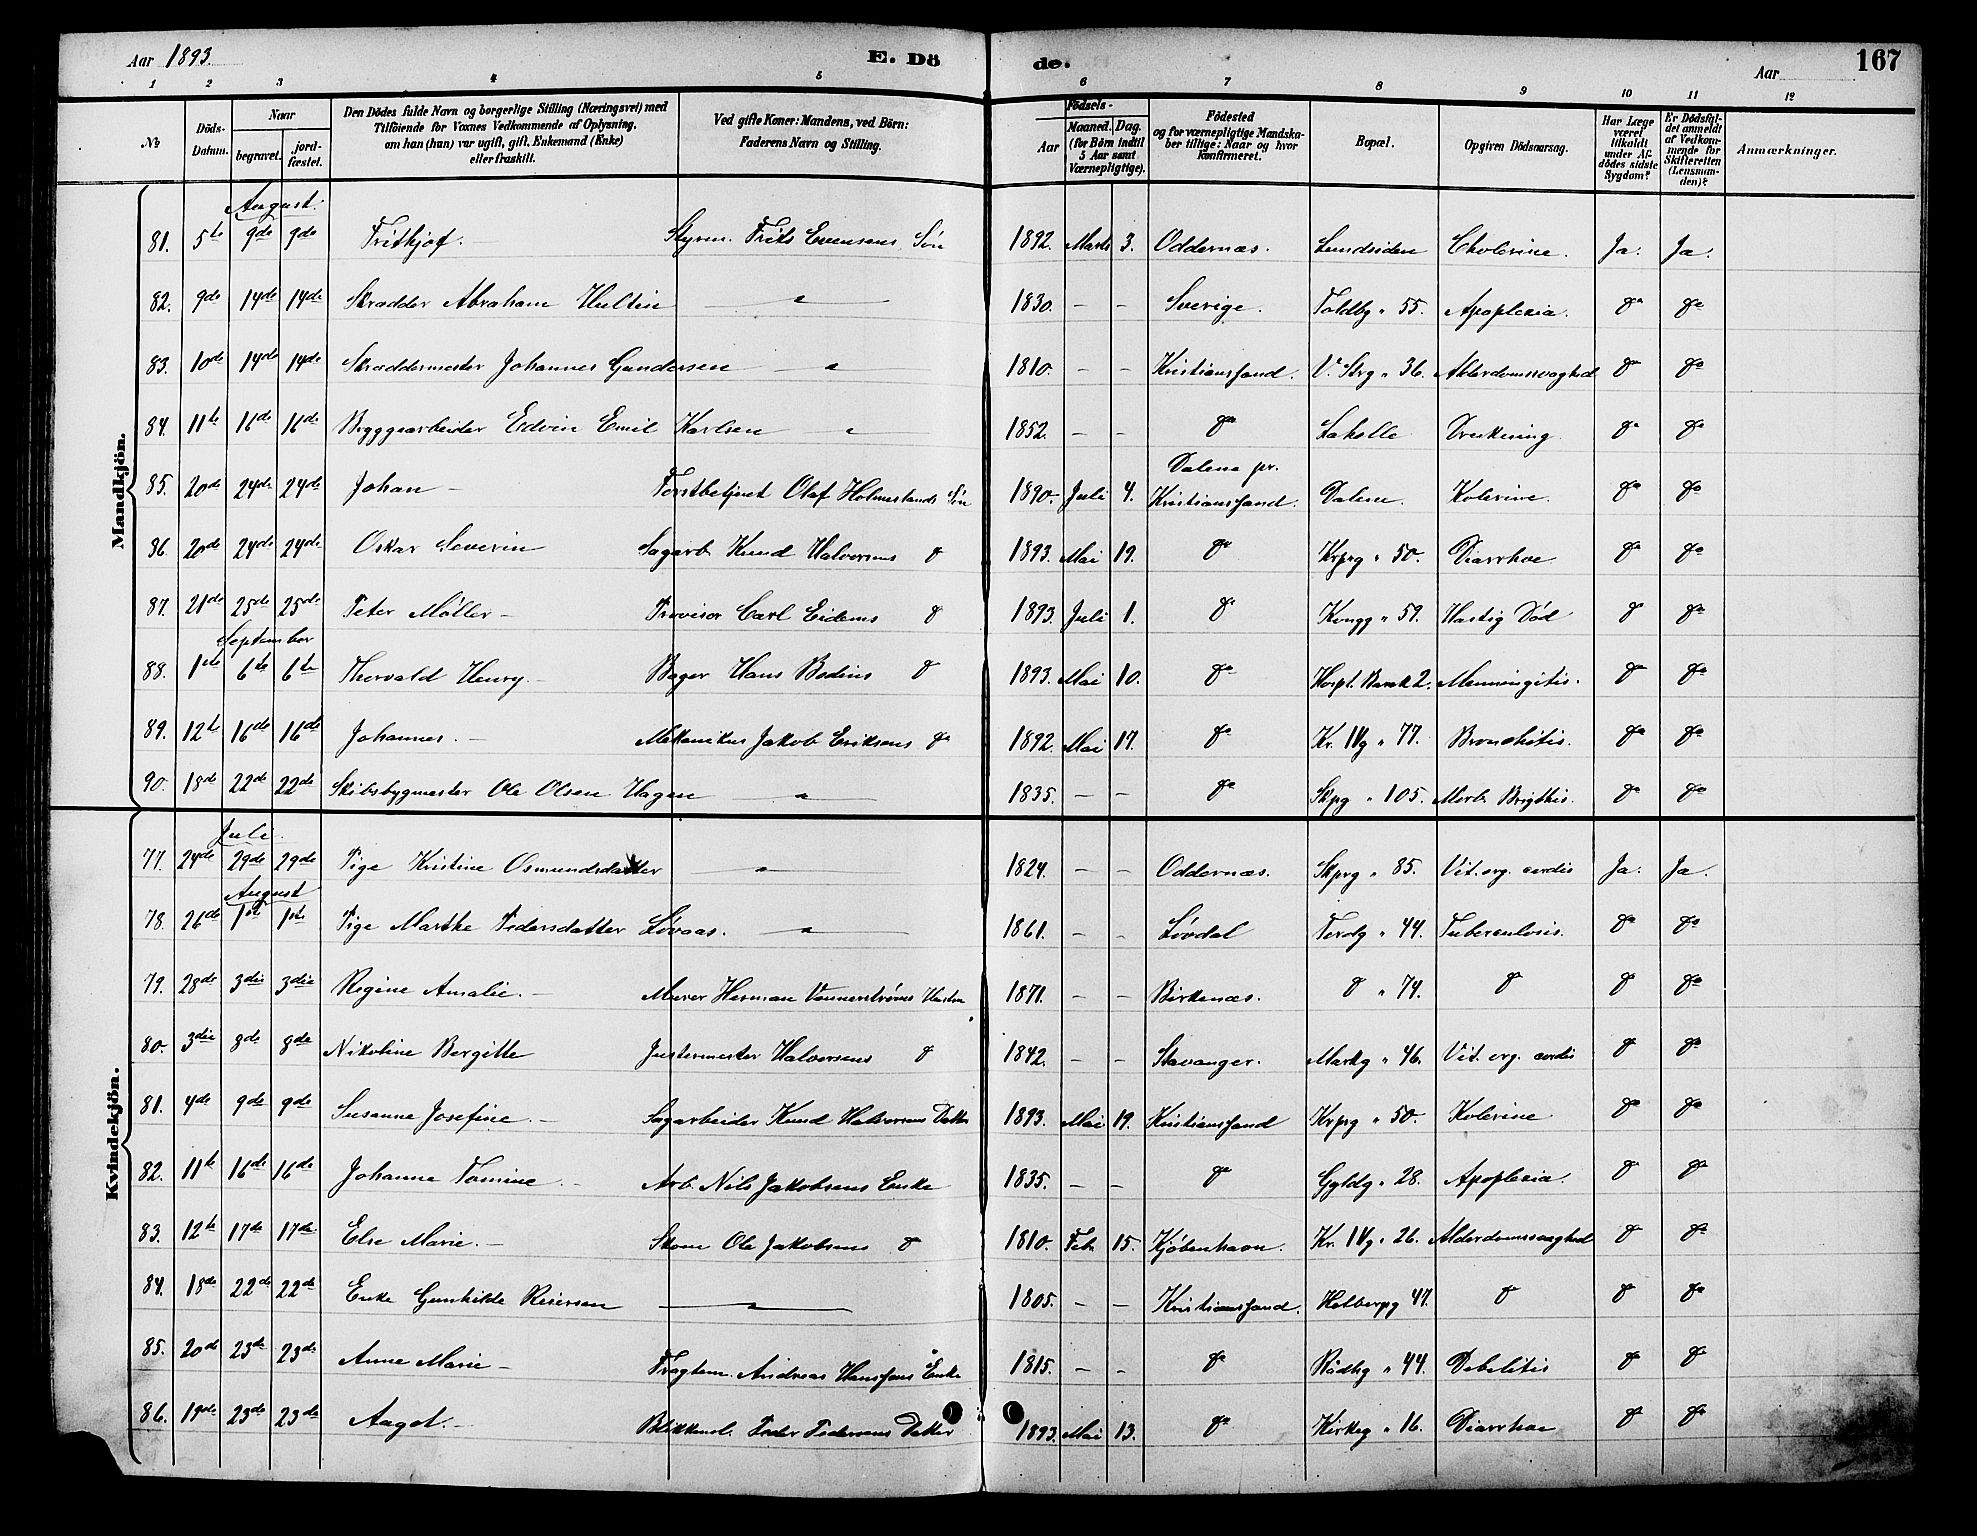 Aar 1893. E. Dö de. Aar 167
1 2 3 4 5 6 7 8 9 10 11 12
No
Döds-Datum.
Naar begravet. jordfæstet.
Den Dödes fulde Navn og borgerlige Stilling (Næringsvei) med Tilföiende for Voxnes Vedkommende af Oplysning, om han (hun) var ugift, gift, Enkemand (Enke) eller fraskilt.
Ved gifte Koner: Mandens, ved Börn: Faderens Navn og Stilling.
Födsels- Aar Maaned. Dag. (for Börn indtil 5 Aar samt Værnepligtige).
Födested og for værnepligtige Mandskaber tillige: Naar og hvor konfirmeret.
Bopæl.
Opgiven Dödsaarsag.
Har Læge været tilkaldt under Afdödes sidste Sygdom?
Er Dödsfaldet anmeldt af Vedkommende for Skifteretten (Lensmanden)?
Anmærkninger.
Mandkjön.
August.
81. 5te 9de 9de Frithjof. – Styrm. Frits Evensens Søn 1892. Marts 3. Oddernæs. Lundsiden Cholerine. Ja. Ja.
82. 9de 14de 14de Skrædder Abraham Hultin " 1830. – – Sverige. Toldbg " 55. Apoplexia. do do
83. 10de 14de 14de Skræddermester Johannes Gundersen " 1810. – – Kristianssand. V. Strg " 36. Alderdomssvaghed do do
84. 11te 16de 16de Bryggearbeider Edvin Emil Karlsen " 1852. – – do Lahelle Drukning do do
85. 20de 24de 24de Johan – Forstbetjent Olaf Holmeslands Søn 1890. Juli 4. Dalene pr. Kristianssand. Dalene. Kolerine. do do
86. 20de 24de 24de Oskar Severin Sagarb. Knud Halvorsens do 1893. Mai 19. do Krprg " 50. Diarrhoe do do
87. 21de 25de 25de Peter Møller – Provisor Carl Eidems do 1893. Juli 1. do Kongg " 59. Hastig Død do do
September
88. 1ste 6te 6te Thorvald Henry. – Bager Hans Bodins do 1893. Mai 10. do Hospt. Barak 2. Menningitis. do do
89. 12te 16de 16de Johannes. – Mekanikus Jakob Eriksens do 1892. Mai 17. do Kr. IVg " 77. Bronchitis. do do
90. 18de 22de 22de Skibsbygmester Ole Olsen Hagen " 1835. – – do Skprg " 105. Morb. Brigthii. do do
Kvindekjön.
Juli.
77. 24de 29de 29de Pige Kristine Osmundsdatter " 1824. – – Oddernæs. Skprg " 85. Vit. org. cordis Ja. Ja.
August
78. 26de 1ste 1ste Pige Marthe Pedersdatter Løvaas. " 1861. – – Løvdal Tordg " 44. Tuberculosis. do do
79. 28de 3die 3die Regine Amalie. – Murer Herman Vennerstrøms Hustru 1871. – – Birkenæs. do " 74. do do do
80. 3die 8de 8de Nikoline Bergitte Justermester Halvorsens do 1842. – – Stavanger. Markg " 46. Vit. org. cordis do do
81. 4de 9de 9de Susanne Josefine. – Sagarbeider Knud Halvorsens Datter 1893. Mai 19. Kristianssand Krprg " 50. Kolerine do do
82. 11te 16de 16de Johanne Tomine. – Arb. Nils Jakobsens Enke 1835. – – do Gyldg " 28. Apoplexia. do do
83. 12te 17de 17de Else Marie. – Skom Ole Jakobsens do 1810. Feb. 15. Kjøbenhavn. Kr. IVg " 26. Alderdomssvaghed do do
84. 18de 22de 22de Enke Gunhilde Reiersen " 1805. – – Kristianssand. Holbergg 47. do do do
85. 20de 23de 23de Anne Marie – Fragtem. Andreas Hanssens Enke 1815. – – do Rådhg " 44. Debilitis do do
86. 19de 23de 23de Aagot. – Blikkensl. Peder Pedersens Datter 1893. Mai 13. do Kirkeg " 16. Diarrhoe do do